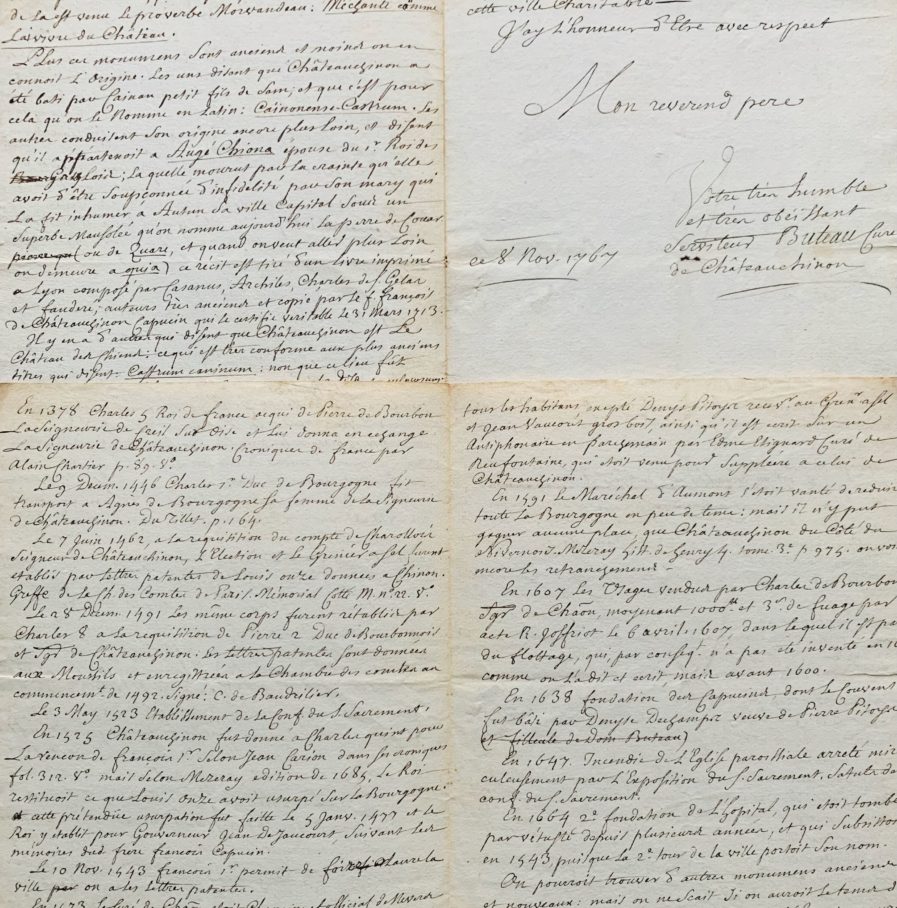 de la est venu le proverbe Morvandeau: Mechante comme
La vivre du Château.
Plus ces monumens sont anciens et moins on en
connoit L'Origine. Les uns disent que Châteauchinon a
été bati par Cainan petit fils de Sam, et que c'est pour
cela qu'on le Nomme en Latin: Cainonense-Castrum. Les
autres conduisent son origine encore plus Loin, et disent
qu'il appartenoit a Augé Chiona épouse du 1r. Roi des
Gaulois; La quelle mourut par la crainte qu'elle
avoit d'être soupçonnée d'infidelité par son mary qui
La fit inhumer a Autun sa ville Capital sous un
superbe Mausolée qu'on nomme aujourd'hui La pierre de Couar
(ou de Quare, et quand on veut aller plus Loin
on demeure a quia) ce récit est tiré d'un Livre imprimé
a Lyon composé par Casanus, Archiles, Charles de S. Gelar
et fauderé, auteurs très anciens et copié par Le f. françois
de Châteauchinon Capucin qui le certifie veritable Le 31 Mars 1713.
Il y en a d'autres qui disent que Châteauchinon est Le
Château des Chiens; ce qui est très conforme aux plus anciens
titres qui disent: Castrum caninum: non que ce lieu fut
cette ville Charitable
J'ay L'honneur d'Etre avec respect
Mon reverend pere
Votre très humble
et très obéissant
Serviteur Buteau Curé
de Châteauchinon
ce 8 Nov. 1767
En 1378 Charles 5 Roi de france acqui de Pierre de Bourbon
La Seigneurie de Creil sur Oise et Lui donna en echange
La Signeurie de Châteauchinon. Croniques de france par
Alain Chartier p. 89. v°.
Le 9 Decem. 1446 Charles 1r. Duc de Bourgogne fit
transport a Agnès de Bourgogne sa femme de la Signeurie
de Châteauchinon. Du Tillet. p. 164.
Le 7 Juin 1462, a la requisition du compte de Charollois
Seigneur de Châteauchinon, L'Election et Le Grenier a sel furent
etablis par Lettres patentes de Louis onze données a Chinon.
Greffe de la Ch. des Comtes de Paris. Mémorial Cotté M. n° 22. v°.
Le 28 Decem. 1491 Les même corps furent rétablis par
Charles 8 a La requisition de Pierre 2 Duc de Bourbonnois
et Sgr de Châteauchinon. Les Lettres patentes sont données
aux Moutils et enregistrées a la Chambre des comtes au
commencemt. de 1492. Signé: C. de Baudrilier.
Le 3 May 1523 Etablissement de La Conf. du S. Sacrement.
En 1525 Châteauchinon fut donné a Charles quint pour
La rençon de françois 1r. Selon Jean Carion dans ses croniques
fol. 312. v°. mais selon Mezeray edition de 1685, Le Roi
restituoit ce que Louis Onze avoit usurpé sur La Bourgogne.
cette prétendue usurpation fut faitte Le 5 Janv. 1477 et Le
Roy y etablit pour Gouverneur Jean de Jaucourt suivant Les
mémoires dud. frère françois Capucin.
Le 10 Nov. 1543 francois 1r. permit de claure la
ville on a les Lettres patentes.
tous les habitans, excepté Denys Pitoys recevr. au Grenr. a sel
et Jean Vaucoret gros bois, ainsi qu'il est ecrit sur un
Antiphonaire en parchemain par Edme Elignard Curé de
Neufontaine, qui etoit venu pour suppléer a celui de
Châteauchinon.
En 1591 Le Maréchal d'Aumons s'etoit vanté de reduire
toute La Bourgogne en peu de tems: mais il n'y put
gagner aucune place, que Châteauchinon du Côté du
Nivernois. Mezeray hist. de henry 4. tome 3e. p 975. on voit
encore les retranchements
En 1607 Les Usages vendus par Charles de Bourbon
Sgr de Chaon, moyenant 1000tt et 3s. de fuage par
acte R. Joffriot le 6 avril 1607, dans lequel il est parlé
du flottage, qui, par conséq. n'a pas été inventé en
comme on L'a dit et ecrit mais avant 1600.
En 1638 fondation des Capucins dont le Couvent
fut bâti par Denyse Deschamps veuve de Pierre Pitoys
(et filleule de Dom Buteau)
En 1647. Incendie de L'Eglise paroissiale arreté mira
culeusement par L'Exposition du S. Sacrement. Statuts de
conf. du S. Sacrement.
En 1664 2e. fondation de L'hopital, qui etoit tombé
par vétusté depuis plusieurs années, et qui subsistoit
en 1543 puisque La 2e. tour de la ville portoit son nom.
On pourroit trouver d'autres monumens anciens
et nouveaux: mais on ne sçait si on auroit le tems d